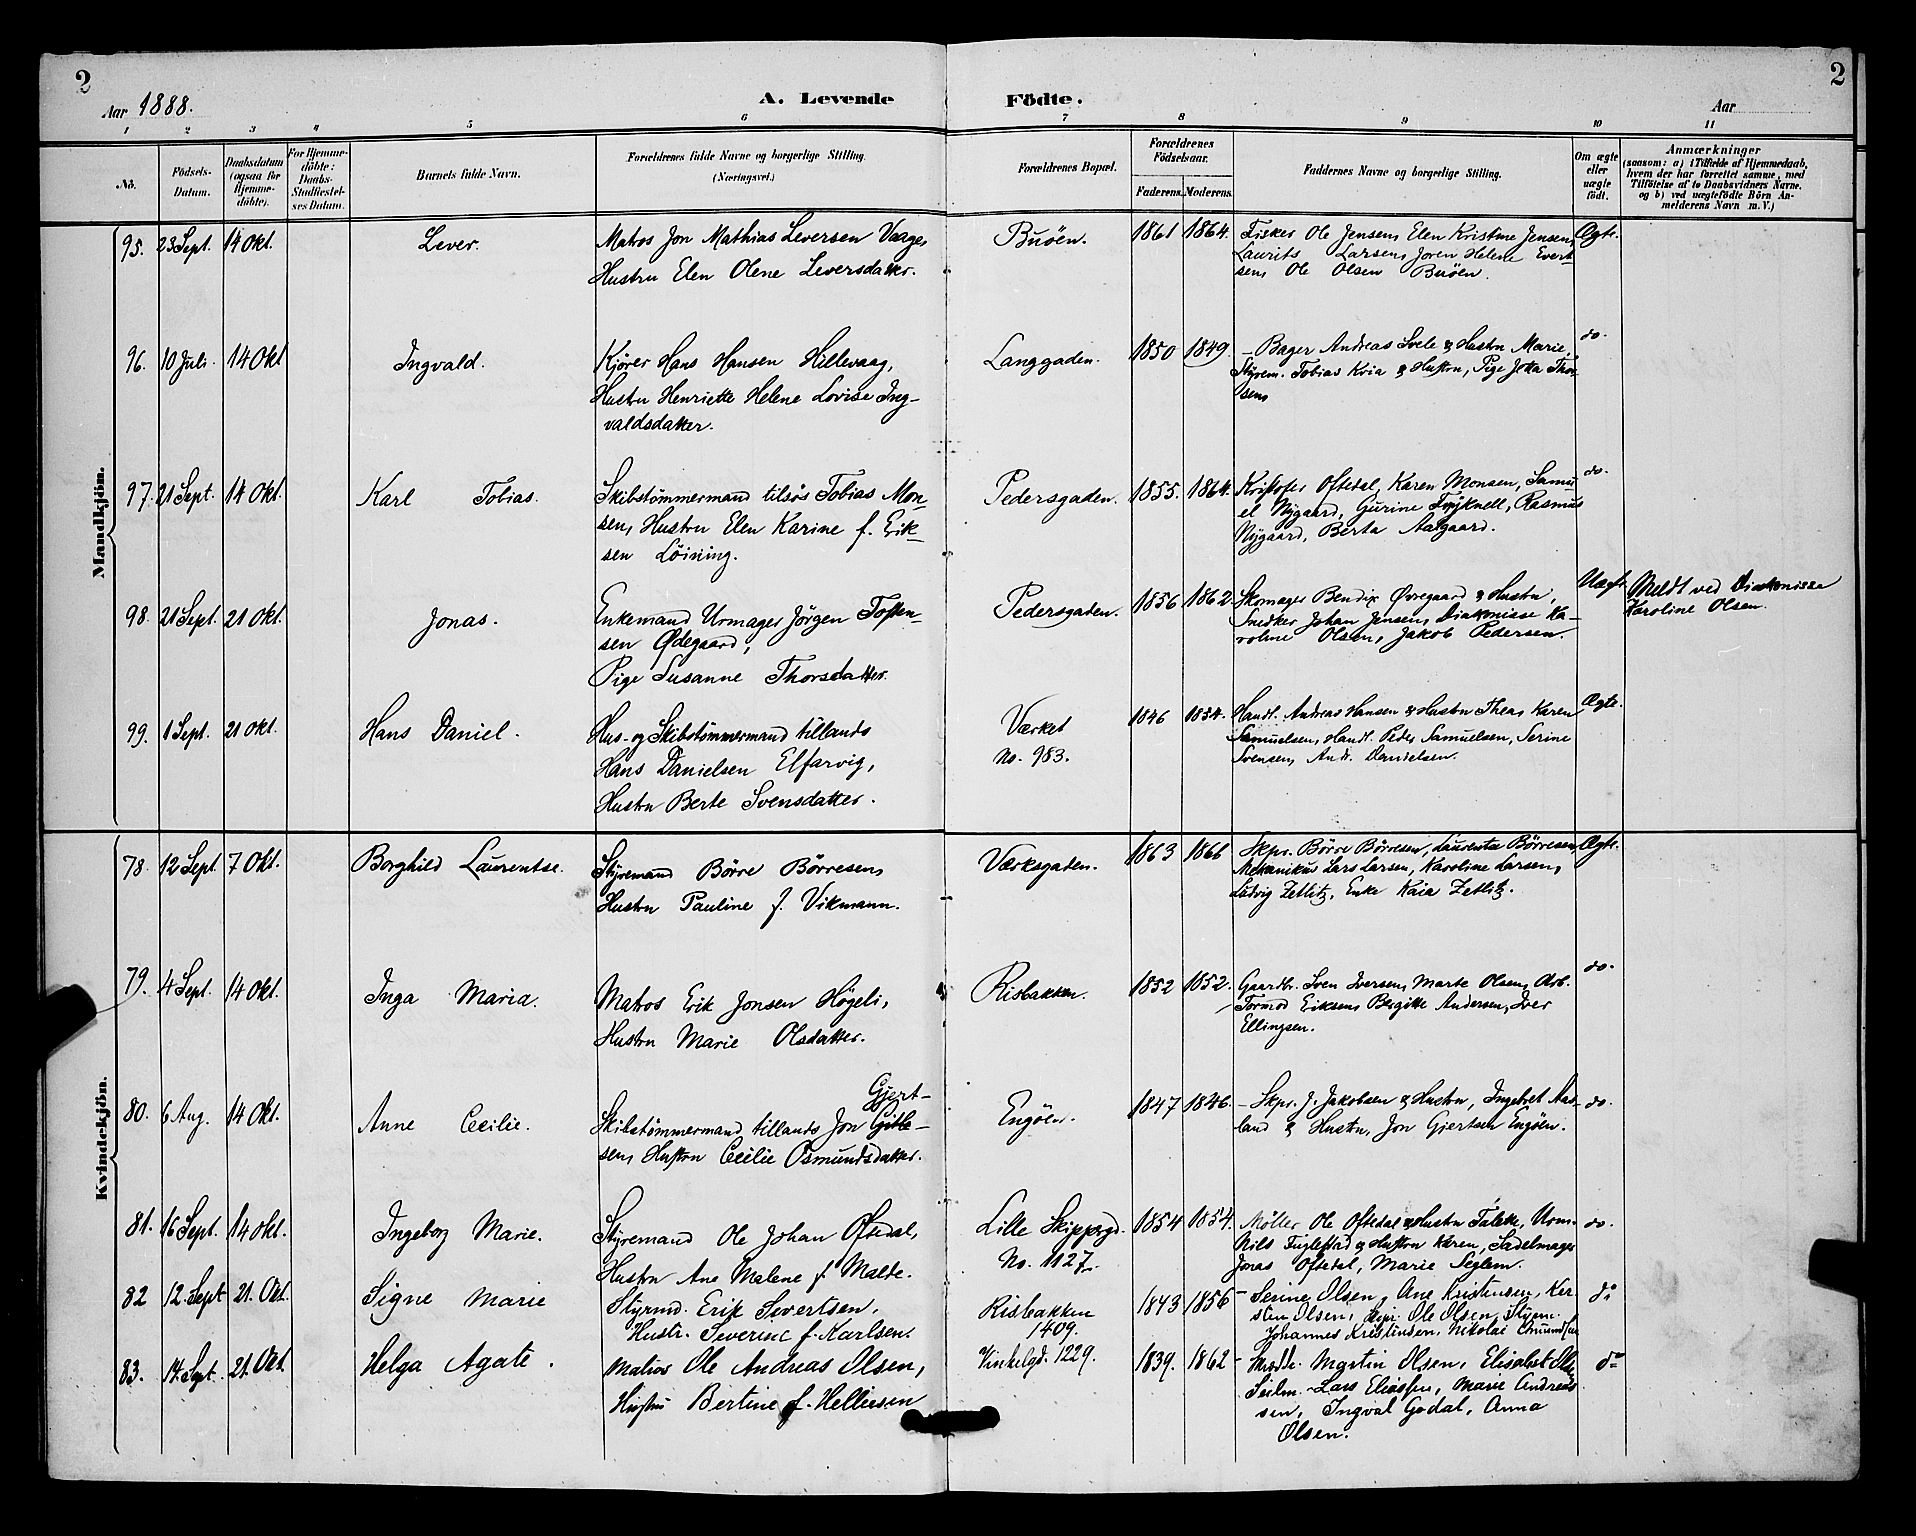 2
Aar 1888.
A. Levende
Födte.
Aar
2
1 2 3 4 5 6 7 8 9 10 11
No.
Födsels-
Datum.
Daabsdatum
(ogsaa for
Hjemme-
döbte).
For Hjemme-
döbte:
Daabs-
Stadfæstel-
ses Datum.
Barnets fulde Navn.
Forældrenes fulde Navne og borgerlige Stilling.
(Næringsvei.)
Forældrenes Bopæl.
Forældrenes
Födselsaar.
Faderens. Moderens.
Faddernes Navne og borgerlige Stilling.
Om ægte
eller
uægte
födt.
Anmærkninger
(saasom: a) i Tilfælde af Hjemmedaab,
hvem der har forrettet samme, med
Tilföielse af to Daabsvidners Navne,
og b) ved uægtefödte Börn An-
melderens Navn m. V.)
Mandkjön.
95. 23 Sept. 14 Okt.
Lever.
Matros Jon Mathias Leversen Vaage,
Hustru Elen Olene Leversdatter.
Buöen.
1861 1864.
Fisker Ole Jensen, Elen Kristine Jensen,
Laurits Larsen, Joren Helene Evert-
sen, Ole Olsen Buöen.
Ægte.
96. 10 Juli. 14 Okt
Ingvald.
Kjører Hans Hansen Hillevaag,
Hustru Henriette Helene Lovise Ing-
valdsdatter.
Langgaden.
1850 1849.
- Bager Andreas Svele & Hustru Marie,
Styrem. Tobias Kvia & Hustru, Pige Joka Thor-
sen
do.
97. 21 Sept. 14 Okt.
Karl Tobias.
Skibstømmermand tilsøs Tobias Mon-
sen, Hustru Elen Karine f. Erik-
sen Löining.
Pedersgaden.
1855. 1864.
Kristofer Oftedal, Karen Monsen, Samu-
el Nygaard, Gurine Frøknell, Rasmus
Nygaard, Berta Aalgaard.
do.
98. 21 Sept. 21 Okt.
Jonas.
Enkemand Urmager Jørgen Tosten-
sen Ødegaard,
Pige Susanne Thorsdatter.
Pedersgaden.
1856 1862
Skomager Bendix Øvregaard & Hustru,
Snedker Johan Jensen, Diakonisse Ka-
roline Olsen, Jakob Pedersen.
Uægt.
Meldt ved Diakonisse
Karoline Olsen.
99. 1 Sept. 21 Okt.
Hans Daniel.
Hus- og Skibstømmermand tillands
Hans Danielsen Elfarvig,
Hustru Berte Svensdatter.
Værket
No. 983.
1846 1854.
Handl. Andreas Hansen & Hustru Thea, Karen
Samuelsen, Handl. Peder Samuelsen, Serine
Svensen, Andr. Danielsen.
Ægte.
Kvindekjön.
78. 12 Sept. 7 Okt.
Borghild Laurentse.
Styremand Börre Börresen,
Hustru Pauline f. Vikmann.
Værksgaden.
1863 1866
Skpr. Börre Börresen, Laurentse Börresen,
Mekanikus Lars Larsen, Karoline Larsen,
Ludvig Zetlitz, Enke Kaia Zetlitz.
Ægte.
79. 4 Sept. 14 Okt.
Inga Maria.
Matros Erik Jonsen Høgeli,
Hustru Marie Olsdatter.
Risbakken.
1852 1852.
Gaardbr. Sven Iversen, Marte Olsen, Arb.
Tormod Eriksen, Bergitte Andersen, Iver
Ellingsen.
do.
80. 6 Aug. 14 Okt.
Anne Cecilie.
Gjert-
Skibstømmermand tillands Jon
sen, Hustru Cecilie Osmundsdatter.
Engöen.
1847 1846.
- Skpr. J. Jakobsen & Hustru, Ingebret Aas-
land & Hustru, Jon Gjertsen Engöen.
do.
81. 16 Sept. 14 Okt.
Ingeborg Marie.
Styremand Ole Johan Oftedal,
Hustru Ane Malene f. Malde.
Lille Skippergd.
No. 1127.
1854 1854.
Møller Ole Oftedal & Hustru Taleke, Urm.
Nils Fuglestad & Hustru Karen, Sadelmager
Jonas Oftedal, Marie Seglem.
do.
82 12. Sept 21. Okt.
Signe Marie
Styrmd. Erik Sivertsen,
Hustr. Severine f. Karlsen.
Risbakken
1409.
1843 1856
- Serine Olsen, Ane Kristensen, Ker-
stin Olsen, Skpr. Ole Olsen, Styrm.
Johannes Kristensen, Nikolai
do
83. 14. Sept. 21. Okt.
Helga Agate.
Matros Ole Andreas Olsen,
Hustru Bertine f. Helliesen
Vinkelgd. 1229.
1839. 1862
- Martin Olsen, Elisabet
Seilm. Lars Eliassen, Marie Andreas-
sen, Ingval Godal, Anna
Olsen.
do